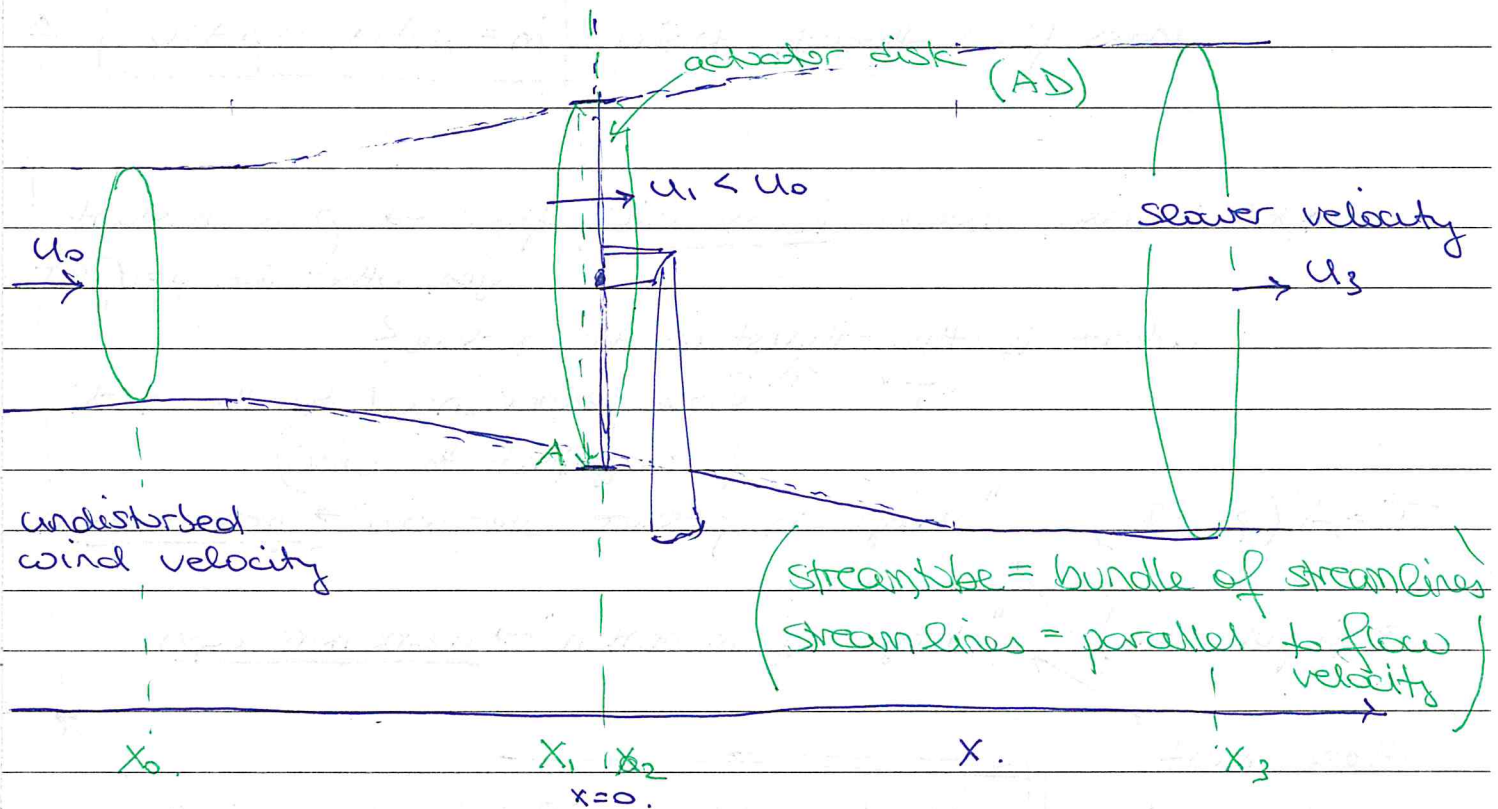 actuator disk
(AD)
u₁ < u₀
slower velocity
u₀
u₃
A
undisturbed
wind velocity
streamtube = bundle of streamlines
streamlines = parallel to flow
velocity
X₀
X₁
X₂
X.
X₃
x=0.